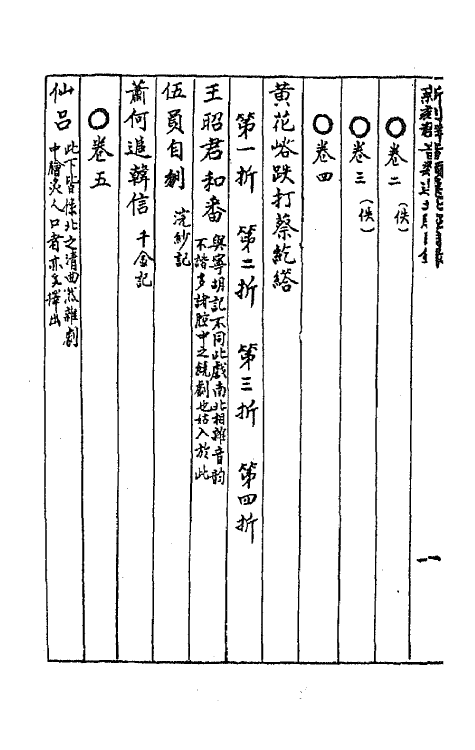 新刻群音類選北腔目錄
〇卷二（佚）
〇卷三（佚）
〇卷四
黃花峪跌打蔡䊠䌈
第一折　第二折　第三折　第四折
王昭君和番　與寧胡記不同此戲南北相雜音韵
不諧多諸腔中之鏡劇也姑入於此
伍員自刎　浣紗記
蕭何追韓信　千金記
〇卷五
仙呂　此下皆係北之清曲然雜劇
中膾炙人口者亦文擇出
一